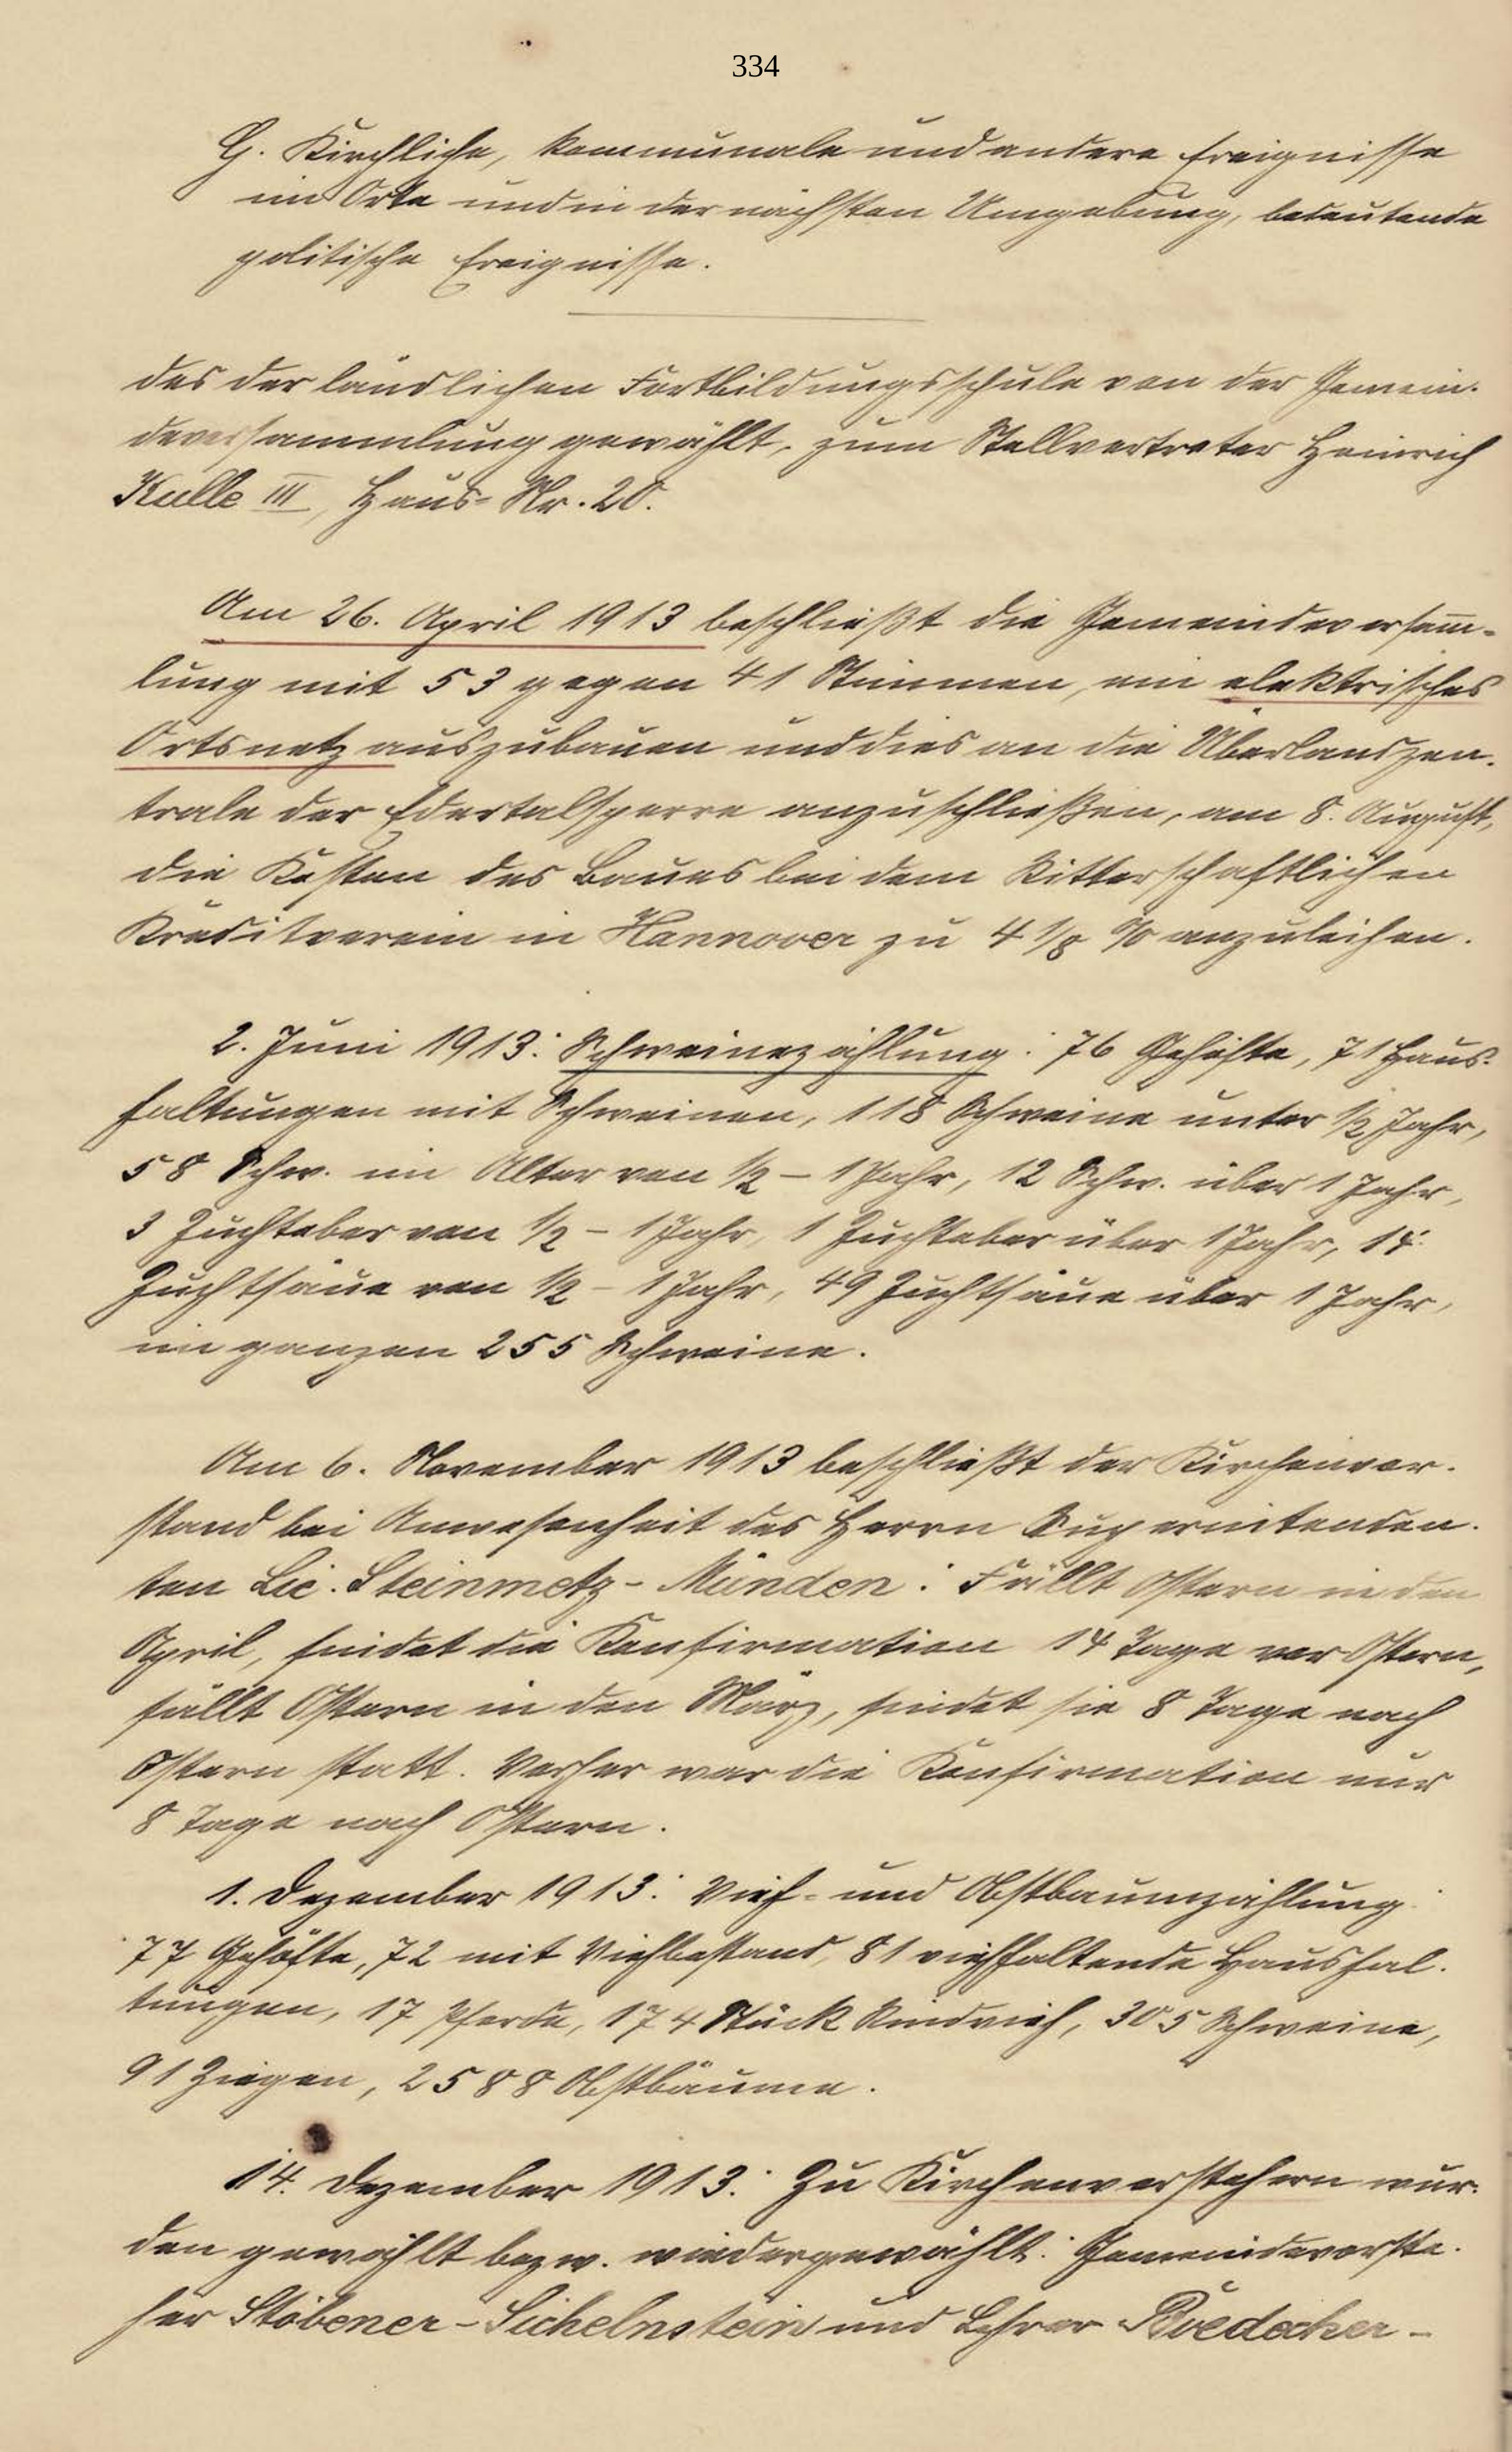 334
G. Kirchliche, kommunale und andere Ereignisse
im Orte und in der nächsten Umgebung, bedeutende
politische Ereignisse.
des der ländlichen Fortbildungsschule von der Gemein-
deversammlung gewählt, zum Stellvertreter Heinrich
Kulle III, Haus-Nr. 20.
Am 26. April 1913 beschließt die Gemeindeversamm-
lung mit 53 gegen 41 Stimmen, ein elektrisches
Ortsnetz auszubauen und dies an die Überlandzen-
trale der Edertalsperre anzuschließen, am 8. August,
die Kosten des Baues bei dem Ritterschaftlichen
Kreditverein in Hannover zu 4 1/8 % anzuleihen.
2. Juni 1913: Schweinezählung: 76 Gehöfte, 71 Haus-
haltungen mit Schweinen, 118 Schweine unter 1/2 Jahr,
58 Schw. im Alter von 1/2 - 1 Jahr, 12 Schw. über 1 Jahr,
3 Zuchteber von 1/2 - 1 Jahr, 1 Zuchteber über 1 Jahr, 14
Zuchtsäue von 1/2 - 1 Jahr, 49 Zuchtsäue über 1 Jahr,
im ganzen 255 Schweine.
Am 6. November 1913 beschließt der Kirchenvor-
stand bei Anwesenheit des Herrn Superintenden-
ten Lic. Steinmetz-Münden: Fällt Ostern in den
April, findet die Konfirmation 14 Tage vor Ostern,
fällt Ostern in den März, findet sie 8 Tage nach
Ostern statt. Vorher war die Konfirmation nur
8 Tage nach Ostern.
1. Dezember 1913: Vieh- und Obstbaumzählung:
77 Gehöfte, 72 mit Viehbestand, 81 viehhaltende Haushal-
tungen, 17 Pferde, 174 Stück Rindvieh, 305 Schweine,
91 Ziegen, 2588 Obstbäume.
14. Dezember 1913: Zu Kirchenvorstehern wur-
den gewählt bezw. wiedergewählt: Gemeindevorste-
her Stöbener-Sichelnstein und Lehrer Ruedecker-